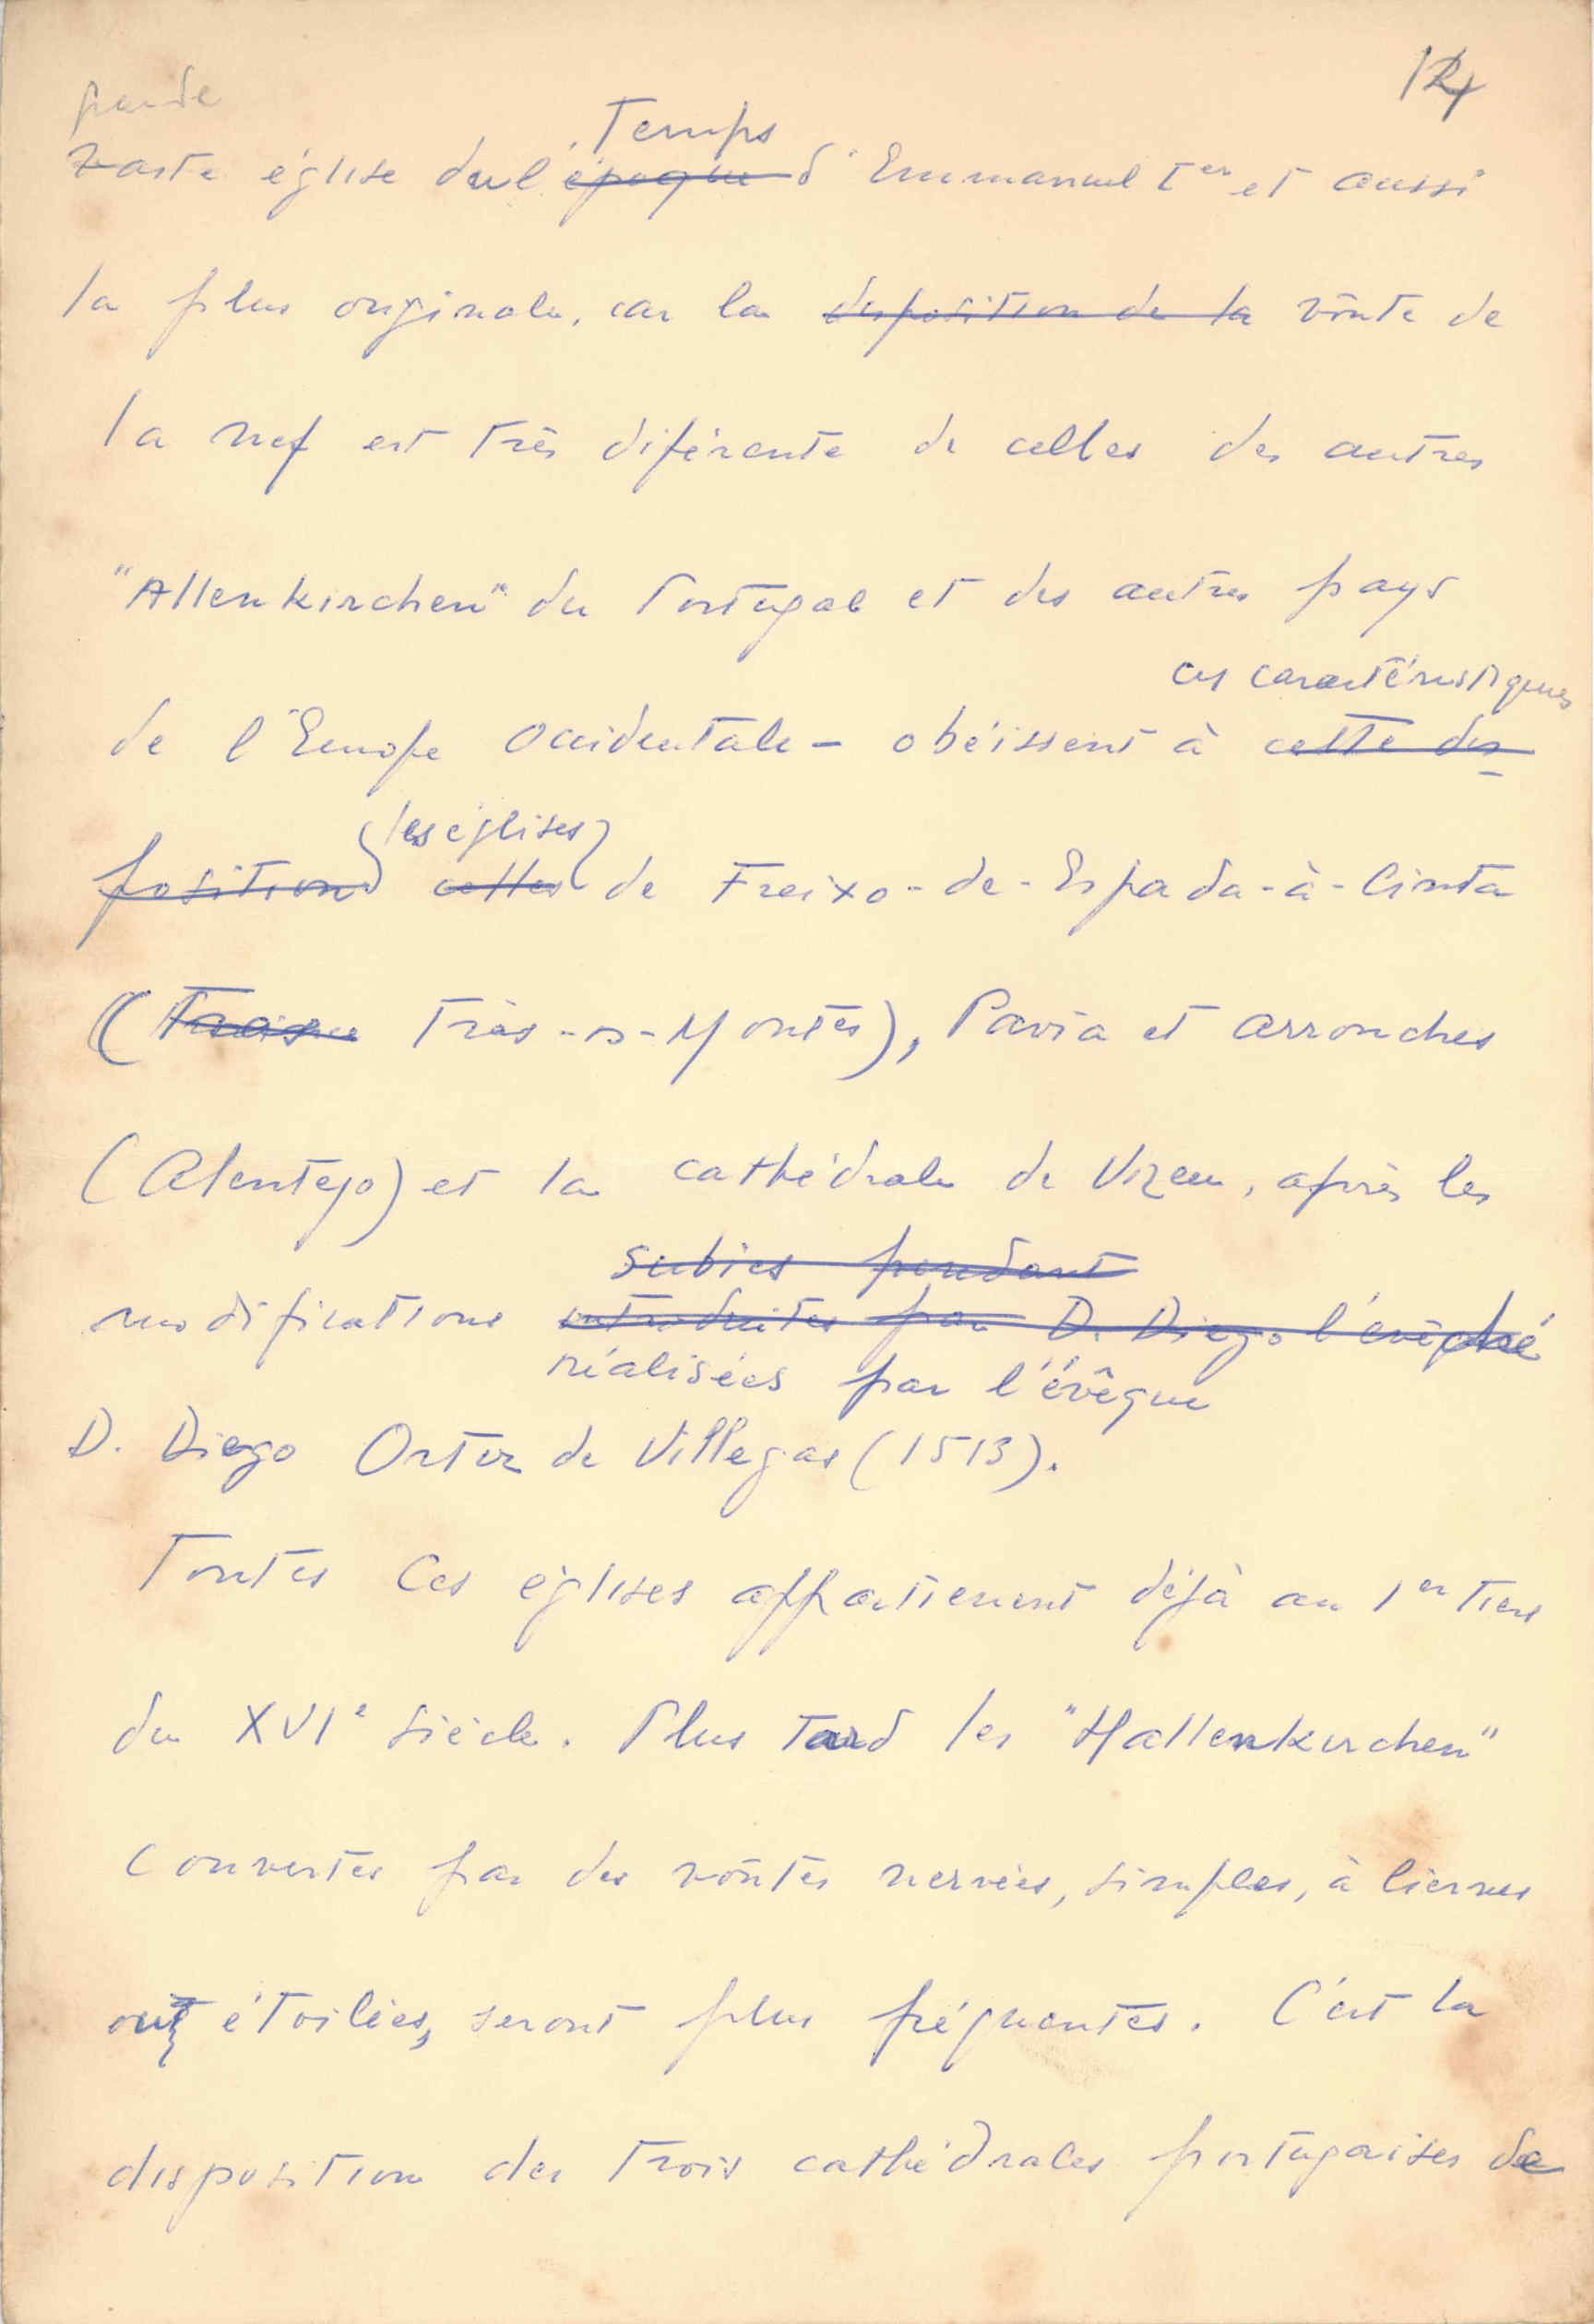 14
grande
Vaste église du l'époque d'Emmanuel Ier et aussi
Temps
la plus originale, car la disposition de la voûte de
la nef est très diférente de celles des autres
"Allenkirchen" du Portugal et des autres pays
ces caractéristiques
de l'Europe Occidentale - obéissent à cette dis-
(les églises)
position celles de Freixo-de-Espada-à-Cinta
(Tras-os-Montes), Pavia et Arronches
(Alentejo) et la cathédrale de Vizeu, après les
subies pendant
modifications introduites par D. Diego l'évêché
réalisées par l'évêque
D. Diego Ortiz de Villegas (1513).
Toutes ces églises appartienent déjà au 1er tiers
du XVIe siècle. Plus tard les "Hallenkirchen"
couvertes par des voûtes nervées, simples, à liernes
ou étoilées, seront plus fréquentes. C'est la
disposition des trois cathédrales portugaises de